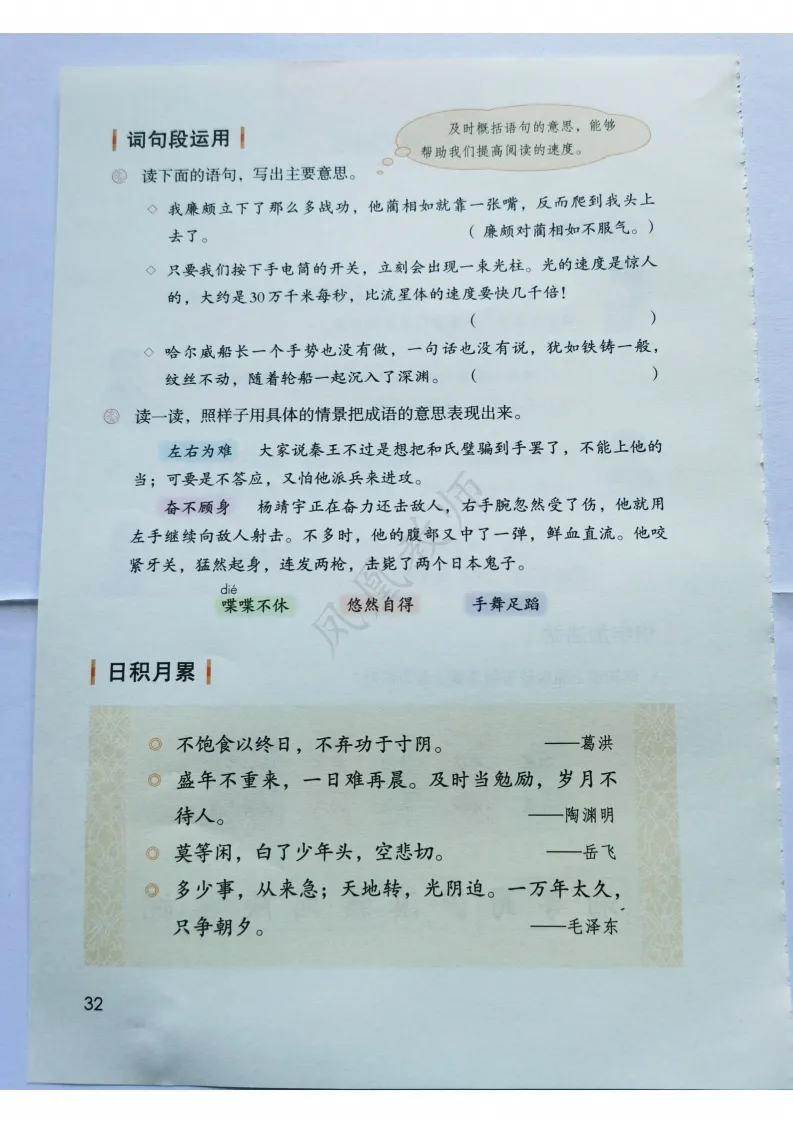 词句段运用
及时概括语句的意思，能够
帮助我们提高阅读的速度。
读下面的语句，写出主要意思。
◇ 我廉颇立下了那么多战功，他蔺相如就靠一张嘴，反而爬到我头上
去了。（廉颇对蔺相如不服气。）
◇ 只要我们按下手电筒的开关，立刻会出现一束光柱。光的速度是惊人
的，大约是30万千米每秒，比流星体的速度要快几千倍！
（ ）
◇ 哈尔威船长一个手势也没有做，一句话也没有说，犹如铁铸一般，
纹丝不动，随着轮船一起沉入了深渊。（ ）
读一读，照样子用具体的情景把成语的意思表现出来。
左右为难 大家说秦王不过是想把和氏璧骗到手罢了，不能上他的
当；可要是不答应，又怕他派兵来进攻。
奋不顾身 杨靖宇正在奋力还击敌人，右手腕忽然受了伤，他就用
左手继续向敌人射击。不多时，他的腹部又中了一弹，鲜血直流。他咬
紧牙关，猛然起身，连发两枪，击毙了两个日本鬼子。
dié
喋喋不休 悠然自得 手舞足蹈
凤凰教师
日积月累
◎ 不饱食以终日，不弃功于寸阴。 ——葛洪
◎ 盛年不重来，一日难再晨。及时当勉励，岁月不
待人。 ——陶渊明
◎ 莫等闲，白了少年头，空悲切。 ——岳飞
◎ 多少事，从来急；天地转，光阴迫。一万年太久，
只争朝夕。 ——毛泽东
32